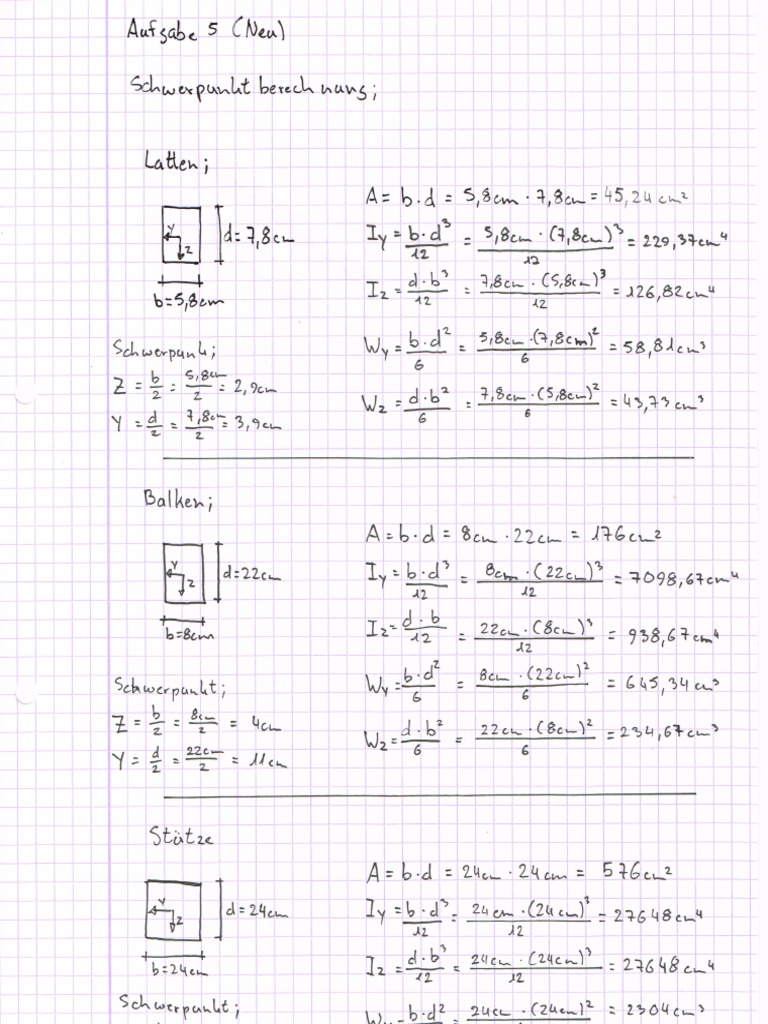 Aufgabe 5 (Neu)
Schwerpunktberechnung;
Latten;
Y
Z
d=7,8cm
b=5,8cm
A = b·d = 5,8cm · 7,8cm = 45,24cm²
Iy = b·d³/12 = 5,8cm·(7,8cm)³/12 = 229,37cm⁴
Iz = d·b³/12 = 7,8cm·(5,8cm)³/12 = 126,82cm⁴
Wy = b·d²/6 = 5,8cm·(7,8cm)²/6 = 58,81cm³
Wz = d·b²/6 = 7,8cm·(5,8cm)²/6 = 43,73cm³
Schwerpunk;
Z = b/2 = 5,8cm/2 = 2,9cm
Y = d/2 = 7,8cm/2 = 3,9cm
Balken;
Y
Z
d=22cm
b=8cm
A = b·d = 8cm · 22cm = 176cm²
Iy = b·d³/12 = 8cm·(22cm)³/12 = 7098,67cm⁴
Iz = d·b/12 = 22cm·(8cm)³/12 = 938,67cm⁴
Wy = b·d²/6 = 8cm·(22cm)²/6 = 645,34cm³
Wz = d·b²/6 = 22cm·(8cm)²/6 = 234,67cm³
Schwerpunkt;
Z = b/2 = 8cm/2 = 4cm
Y = d/2 = 22cm/2 = 11cm
Stütze
Y
Z
d=24cm
b=24cm
A = b·d = 24cm · 24cm = 576cm²
Iy = b·d³/12 = 24cm·(24cm)³/12 = 27648cm⁴
Iz = d·b³/12 = 24cm·(24cm)³/12 = 27648cm⁴
Schwerpunkt;
Wy = b·d² = 24cm·(24cm)² = 2304cm³